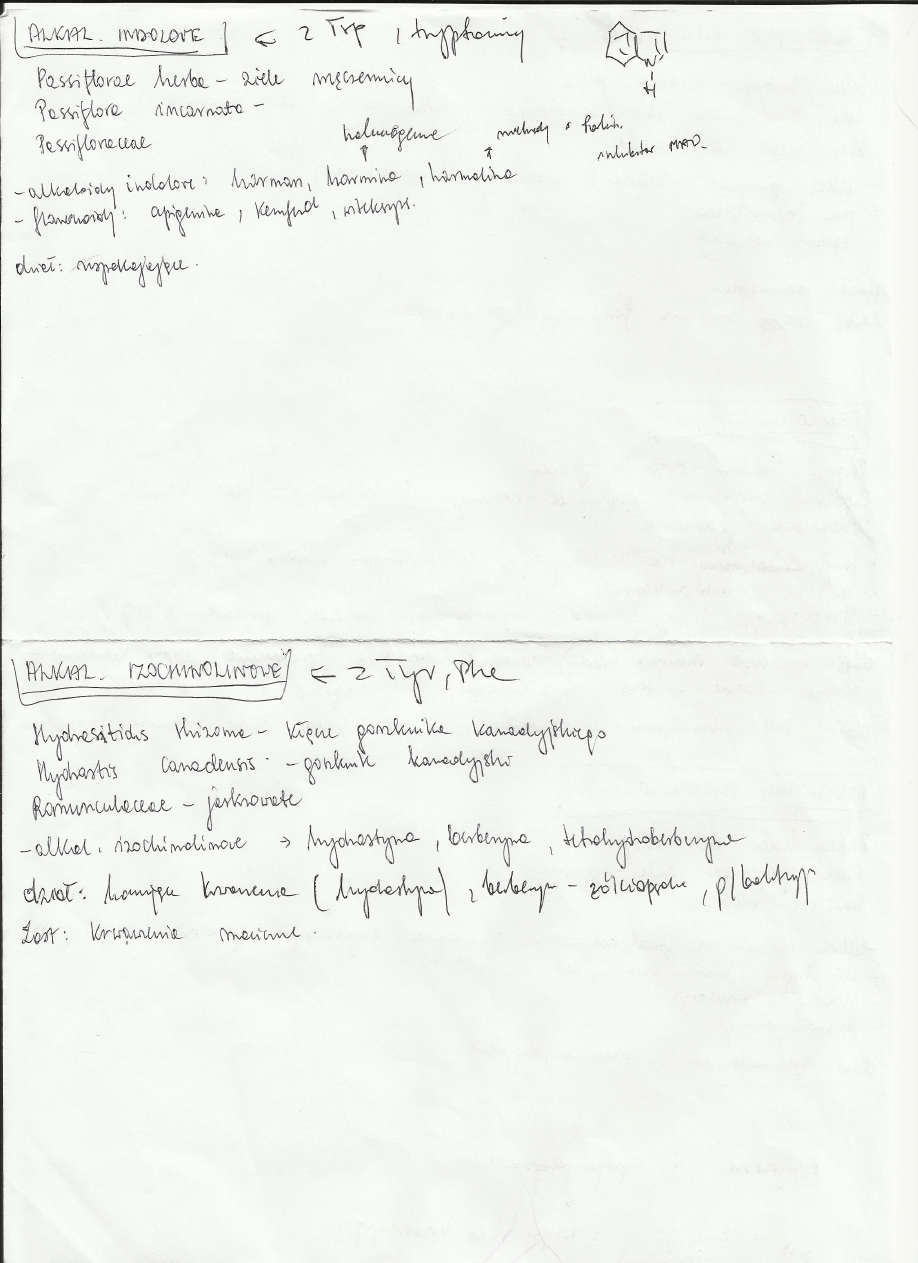 ALKAL. INDOLOWE ← z Trp, tryptaminy
N
H
Passiflorae herba - ziele męczennicy
Passiflora incarnata -
Passifloraceae
halucynogenne
inhibitor MAO
- alkaloidy indolowe: harman, harmina, harmalina
- flawonoidy: apigenina, kemferol, witeksyna
dział: uspokajające.
ALKAL. IZOCHINOLINOWE ← z Tyr, Phe
Hydrastidis rhizoma - kłącze gorzknika kanadyjskiego
Hydrastis canadensis - gorzknik kanadyjski
Ranunculaceae - jaskrowate
- alkal. izochinolinowe → hydrastyna, berberyna, tetrahydroberberyna
dział: hamujące krwawienia (hydrastyna), berberyna - żółciopędne, p/bakteryj
Zast: krwawienia maciczne.